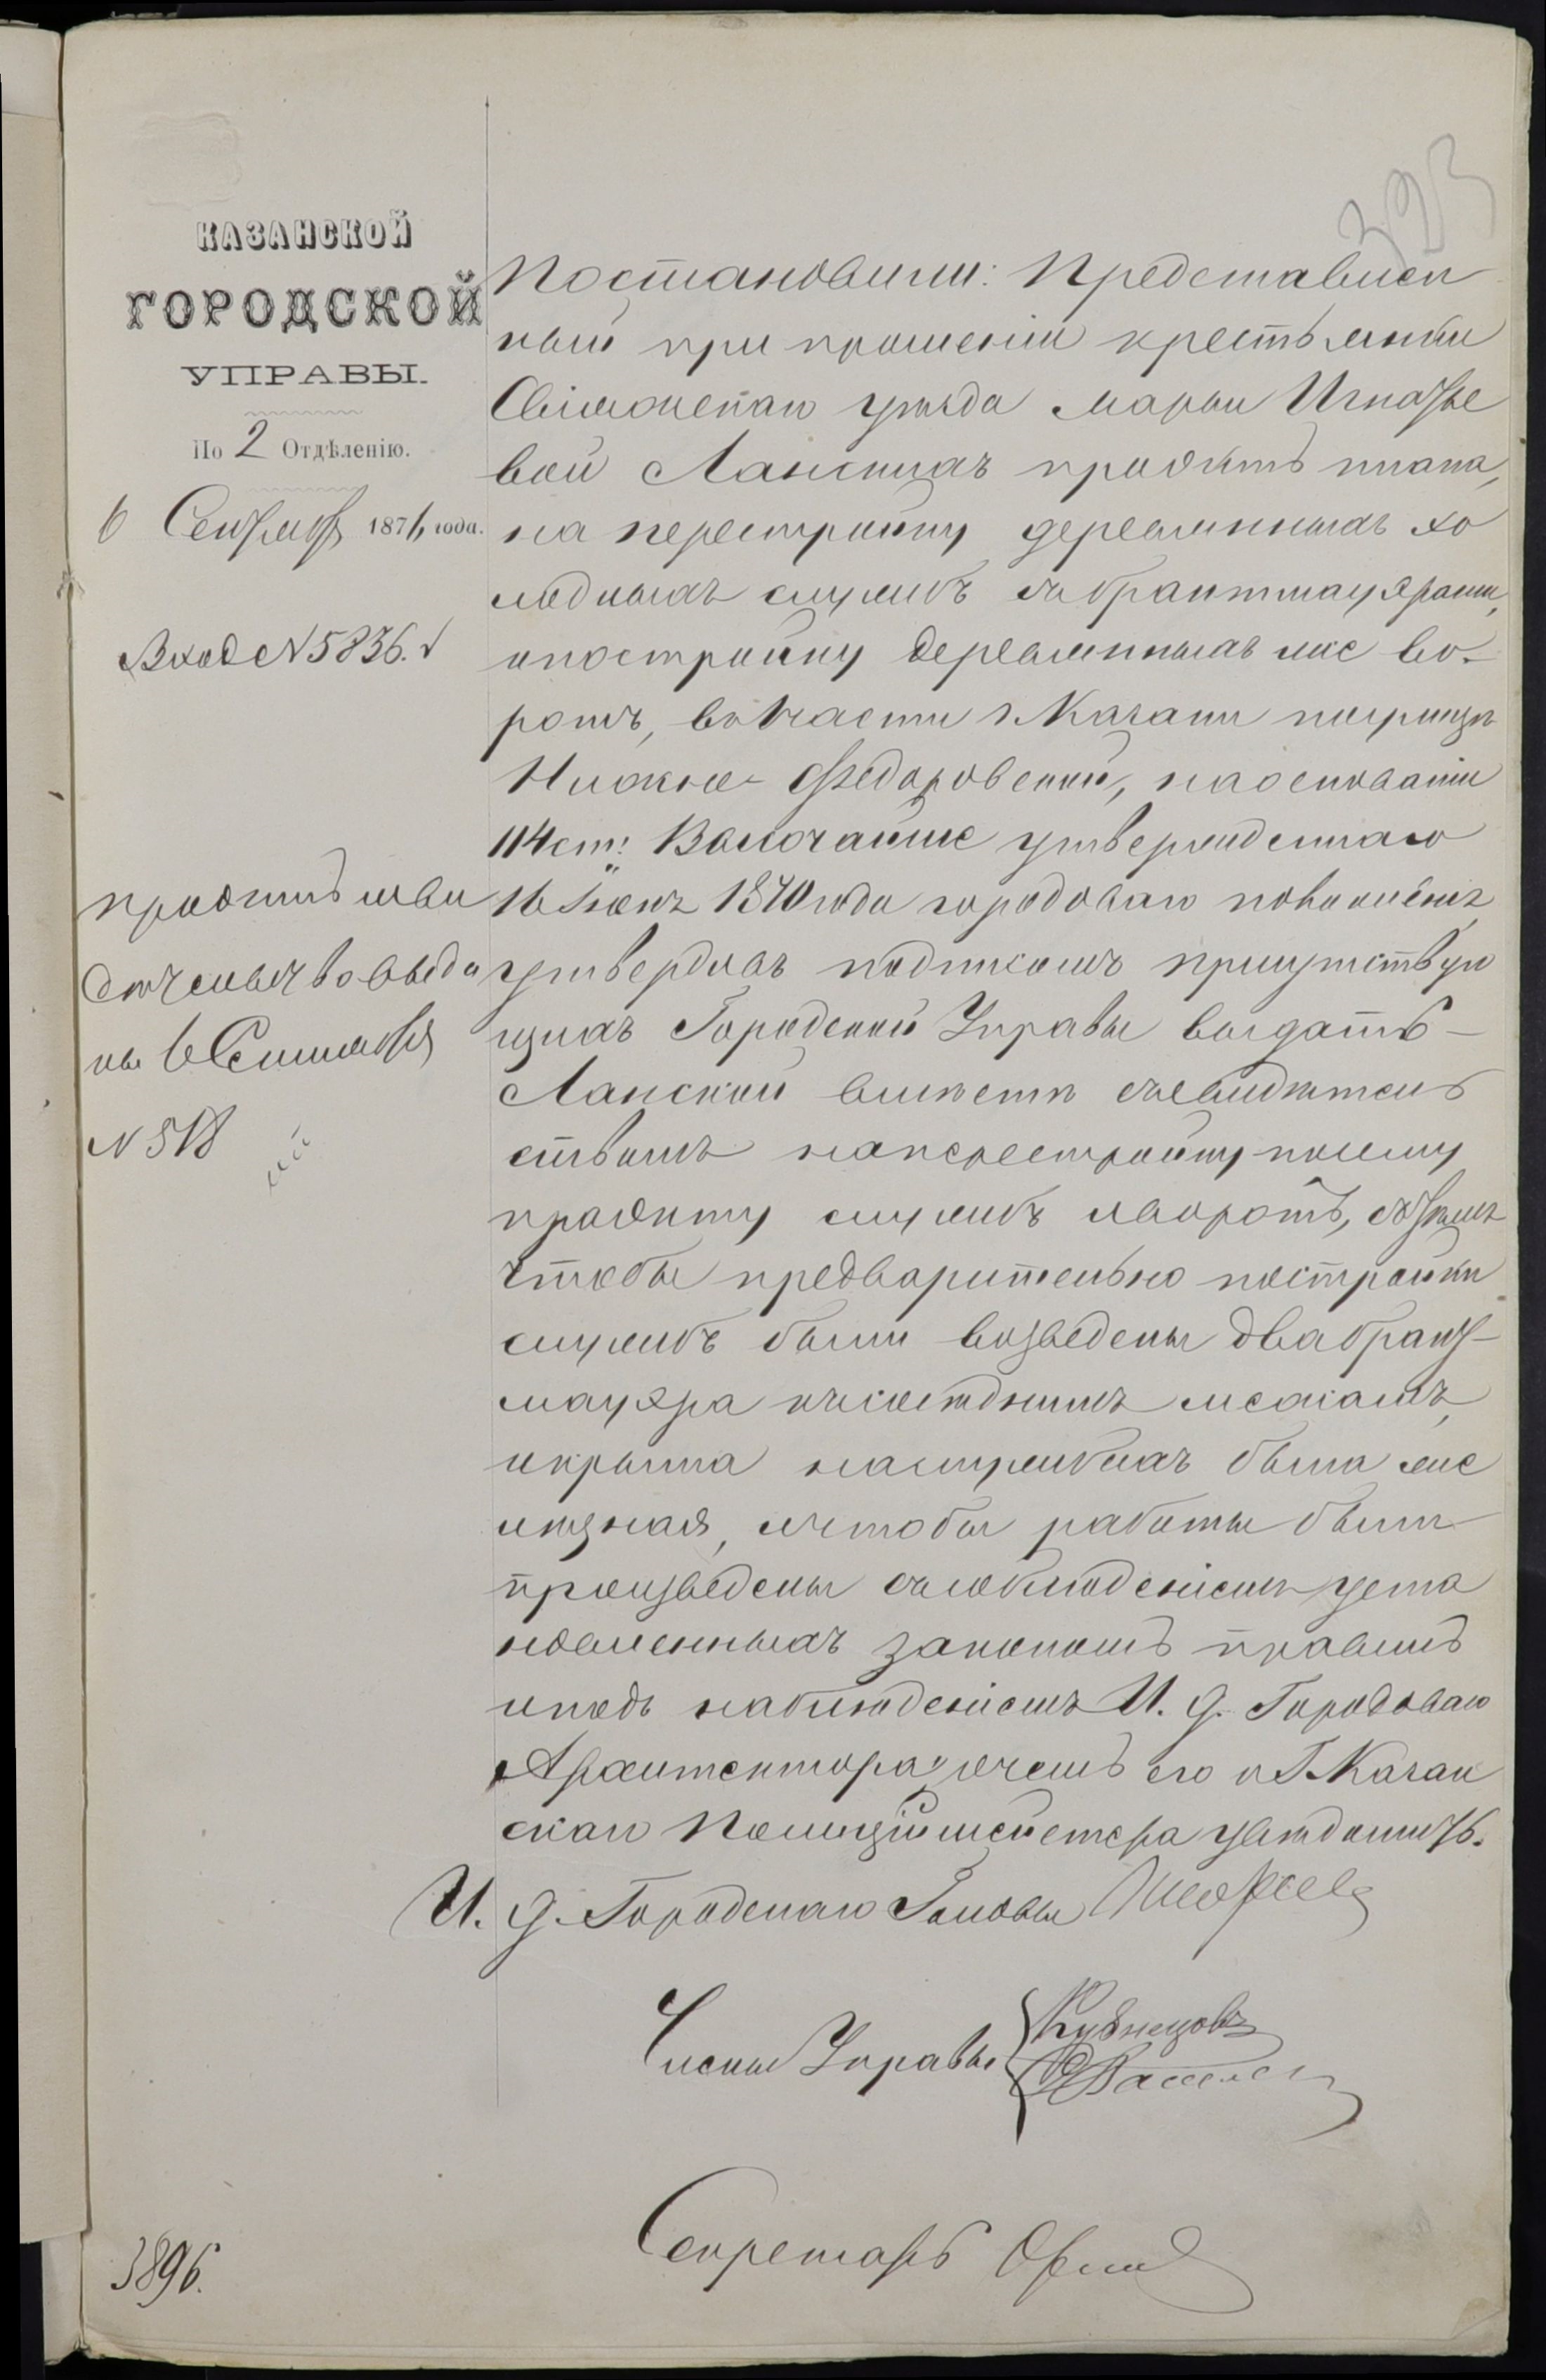 393
КАЗАНСКОЙ
ГОРОДСКОЙ
УПРАВЫ.
По 2 Отдѣленію.
6 Сентября 1876 года.
Вход № 5836.
проэктъ и сви
дѣтельство выда
ны 6 Сентября
№ 518
Постановили: Представлен
ный при прошеніи крестьянки
Свіяжскаго уѣзда Марьи Игнатье
вой Ланской проэктъ плана,
на перестройку деревянныхъ хо
лодныхъ службъ съ брантмауэрами,
и постройку деревянныхъ же во-
ротъ, въ части г. Казани по улицѣ
Нижне-Федоровской, на основаніи
114 ст: Высочайше утвержденнаго
16 Іюня 1870 года городоваго положенія,
утвердивъ подписомъ присутствую
щихъ Городской Управы выдать
Ланской вмѣстѣ съ свидѣтель
ствомъ на перестройку по сему
проэкту службъ и воротъ, съ тѣмъ
чтобы предварительно постройки
службъ были возведены два брант-
мауэра
и крыша на службахъ была же
лѣзная, и чтобы работы были
произведены съ соблюденіемъ уста
новленныхъ закономъ правилъ
и подъ наблюденіемъ И. д. Городоваго
Архитектора, о чемъ его и Г. Казан
скаго Полиціймейстера увѣдомить.
И. д. Городскаго Головы
Члены Управы Кузнецовъ
Секретарь
3896.